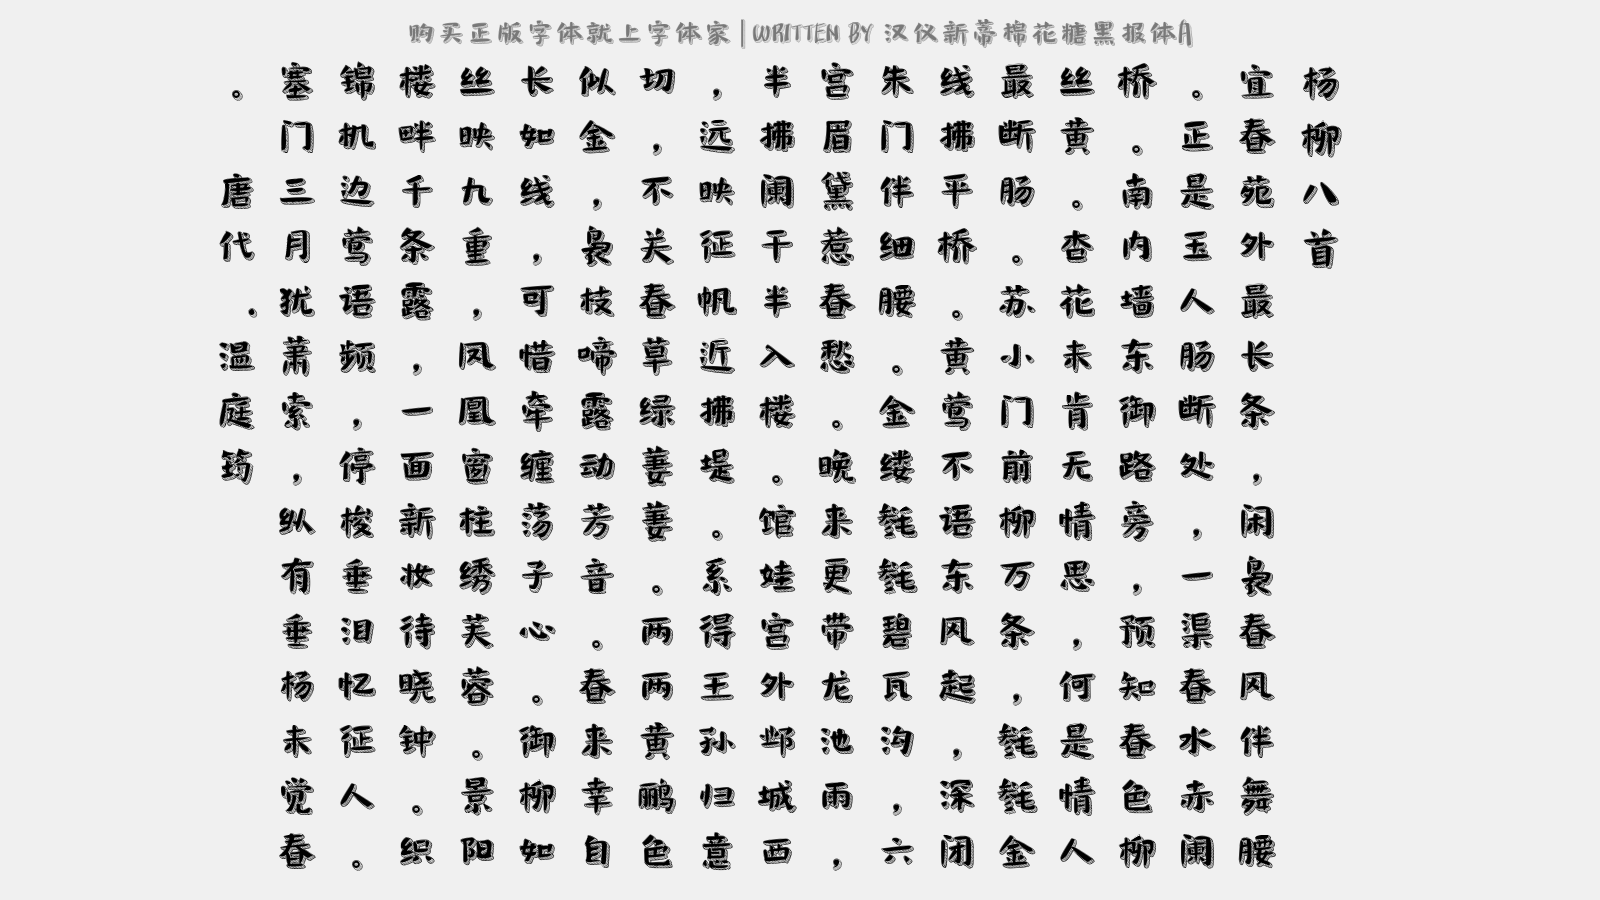 购买正版字体就上字体家|WRITTEN BY 汉仪新蒂棉花糖黑报体A
杨柳八首
宜春苑外最长条，闲袅春风伴舞腰
。正是玉人肠断处，一渠春水赤阑
桥。南内墙东御路旁，预知春色柳
丝黄。杏花未肯无情思，何是情人
最断肠。苏小门前柳万条，毵毵金
线拂平桥。黄莺不语东风起，深闭
朱门伴细腰。金缕毵毵碧瓦沟，六
宫眉黛惹春愁。晚来更带龙池雨，
半拂阑干半入楼。馆娃宫外邺城西
，远映征帆近拂堤。系得王孙归意
切，不关春草绿萋萋。两两黄鹂色
似金，袅枝啼露动芳音。春来幸自
长如线，可惜牵缠荡子心。御柳如
丝映九重，凤凰窗柱绣芙蓉。景阳
楼畔千条露，一面新妆待晓钟。织
锦机边莺语频，停梭垂泪忆征人。
塞门三月犹萧索，纵有垂杨未觉春
。唐代.温庭筠